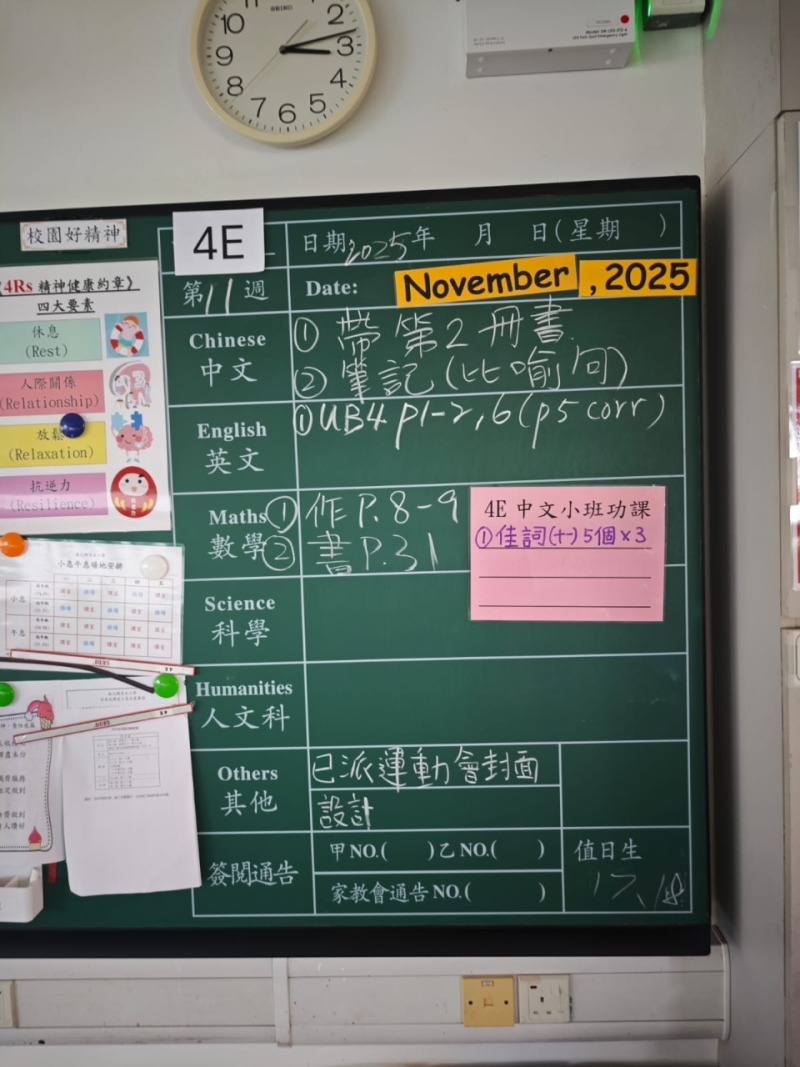 SEIKO
10
2
9
3
8
4
7
6
5
校園好精神
4E
日期2025年 月 日(星期 )
《4Rs 精神健康約章》
四大要素
休息
(Rest)
人際關係
(Relationship)
放鬆
(Relaxation)
抗逆力
(Resilience)
第11週
Date:
November, 2025
Chinese
中文
① 帶第2冊書
② 筆記(比喻句)
English
英文
① UB4 p1-2, 6 (p5 corr)
Maths
數學
① 作 P. 8-9
② 書 P. 31
4E 中文小班功課
① 佳詞(十一) 5個 x 3
Science
科學
Humanities
人文科
Others
其他
已派運動會封面
設計
簽閱通告
甲NO.( ) 乙NO.( )
家教會通告 NO.( )
值日生
17、18
小息午息場地安排
小息
午息